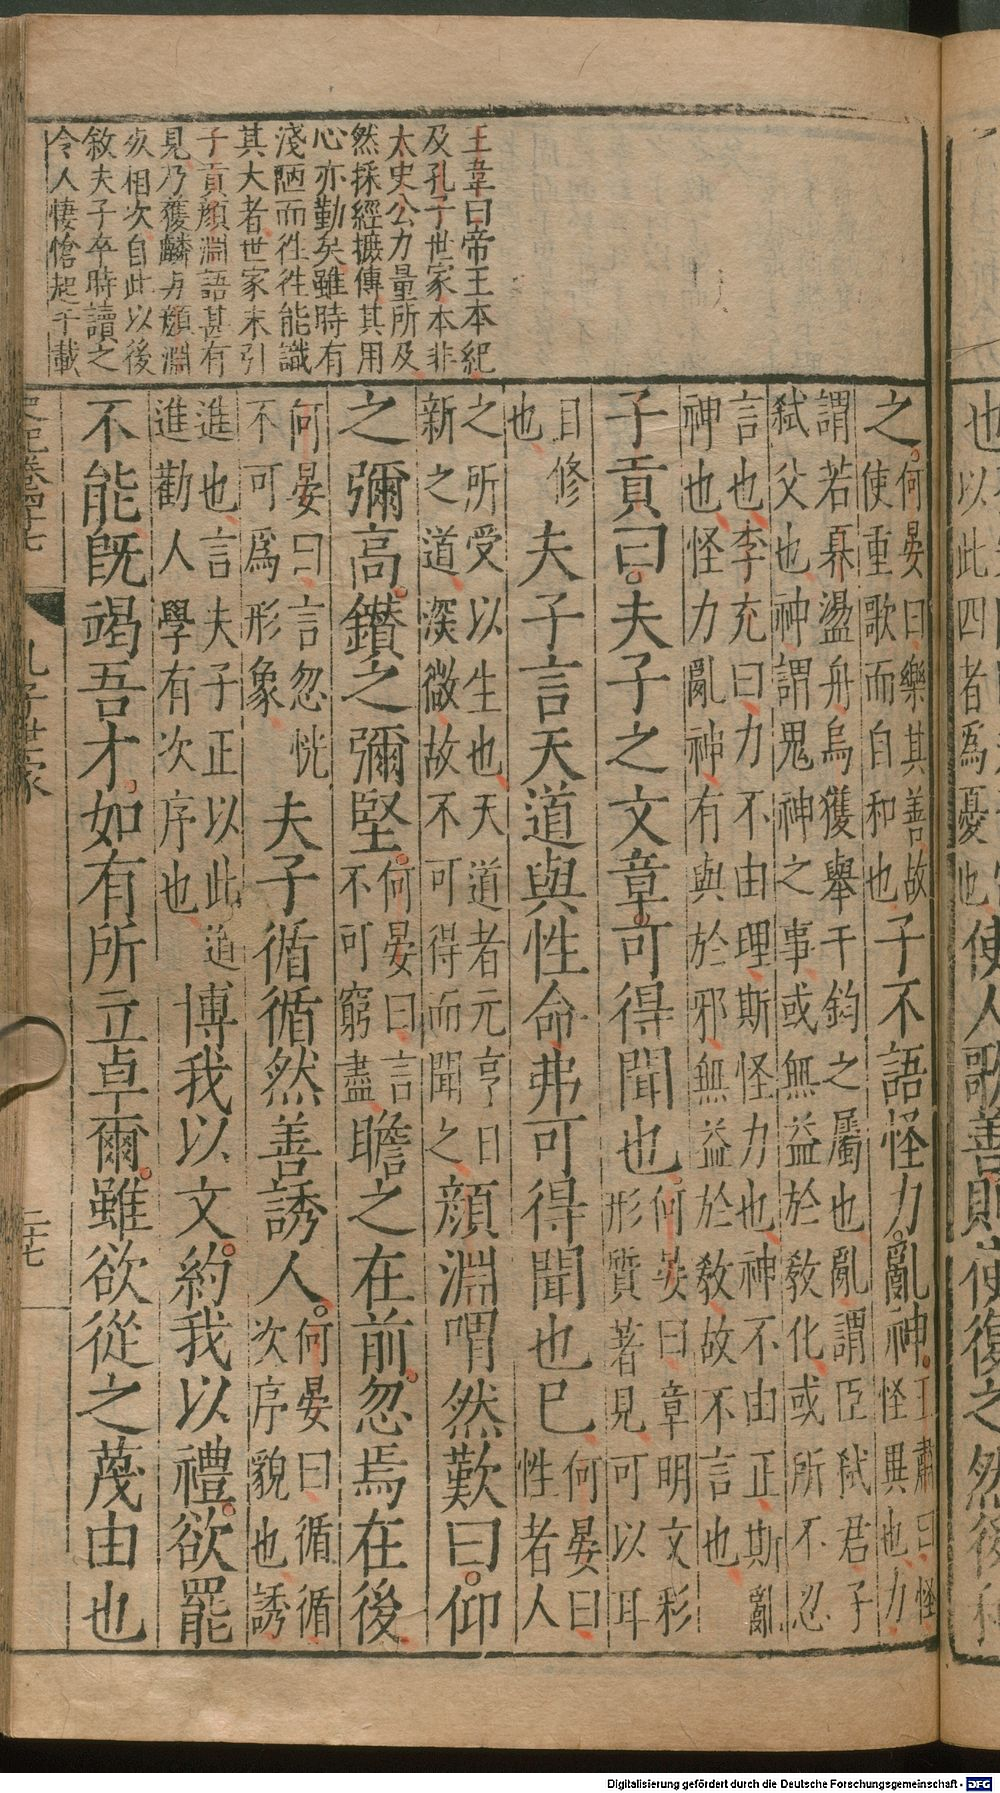 王韋曰帝王本紀
及孔子世家本非
太史公力量所及
然採經摭傳其用
心亦勤矣雖時有
淺陋而徃徃能識
其大者世家末引
子貢顔淵語甚有
見乃獲麟與顔淵
歿相次自此以後
敘夫子卒時讀之
令人悽愴起千載
之何晏曰樂其善故
使重歌而自和也子不語怪力亂神王肅曰怪
怪異也力
謂若奡盪舟烏獲舉千鈞之屬也亂謂臣弒君子
弒父也神謂鬼神之事或無益於敎化或所不忍
言也李充曰力不由理斯怪力也神不由正斯亂
神也怪力亂神有與於邪無益於敎故不言也
子貢曰夫子之文章可得聞也何晏曰章明文彩
形質著見可以耳
目修
也夫子言天道與性命弗可得聞也已何晏曰
性者人
之所受以生也天道者元亨日
新之道深微故不可得而聞之顔淵喟然歎曰仰
之彌高鑽之彌堅何晏曰言
不可窮盡瞻之在前忽焉在後
何晏曰言忽恍
不可爲形象夫子循循然善誘人何晏曰循循
次序貌也誘
進也言夫子正以此道
進勸人學有次序也博我以文約我以禮欲罷
不能旣竭吾才如有所立卓爾雖欲從之蔑由也
史記卷四十七 孔子世家 二十七
也
以此四者爲憂也使人歌善則使復之然後和
Digitalisierung gefördert durch die Deutsche Forschungsgemeinschaft - DFG